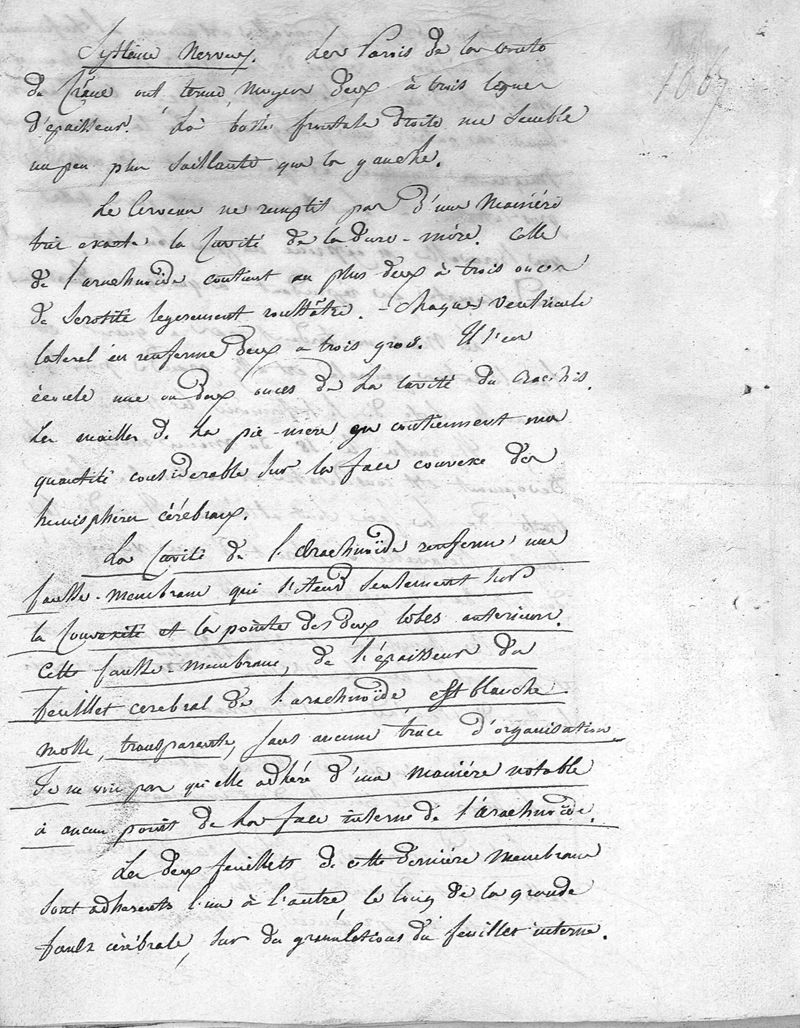 Système Nerveux. Les Parois de la voute
de Crâne ont terme moyen deux à trois lignes
d'épaisseur. La bosse frontale droite me semble
un peu plus saillante que la gauche.
1067
Le Cerveau ne remplit pas d'une Manière
très exacte la Cavité de la dure-mère. Celle
de l'arachnoïde contient au plus deux à trois onces
de serosité legerement roussâtre. - Chaque ventricule
lateral en renferme deux a trois gros. Il s'en
écoule une ou deux onces de la cavité du Rachis.
Les mailles de la pie-mère en contiennent une
quantité considerable sur la face convexe des
hemisphères cérébraux.
La Cavité de l'arachnoïde renferme une
fausse-membrane qui s'étend seulement sur
la Convexité et la pointe des deux lobes anterieurs.
Cette fausse-membrane, de l'épaisseur du
feuillet cerebral de l'arachnoïde, est blanche
molle, transparente, sans aucune trace d'organisation
Je ne vois pas qu'elle adhére d'une manière notable
à aucun point de la face interne de l'arachnoïde.
Les deux feuillets de cette dernière membrane
sont adhérents l'un à l'autre le long de la grande
faulx cérébrale, sur des granulations du feuillet interne.